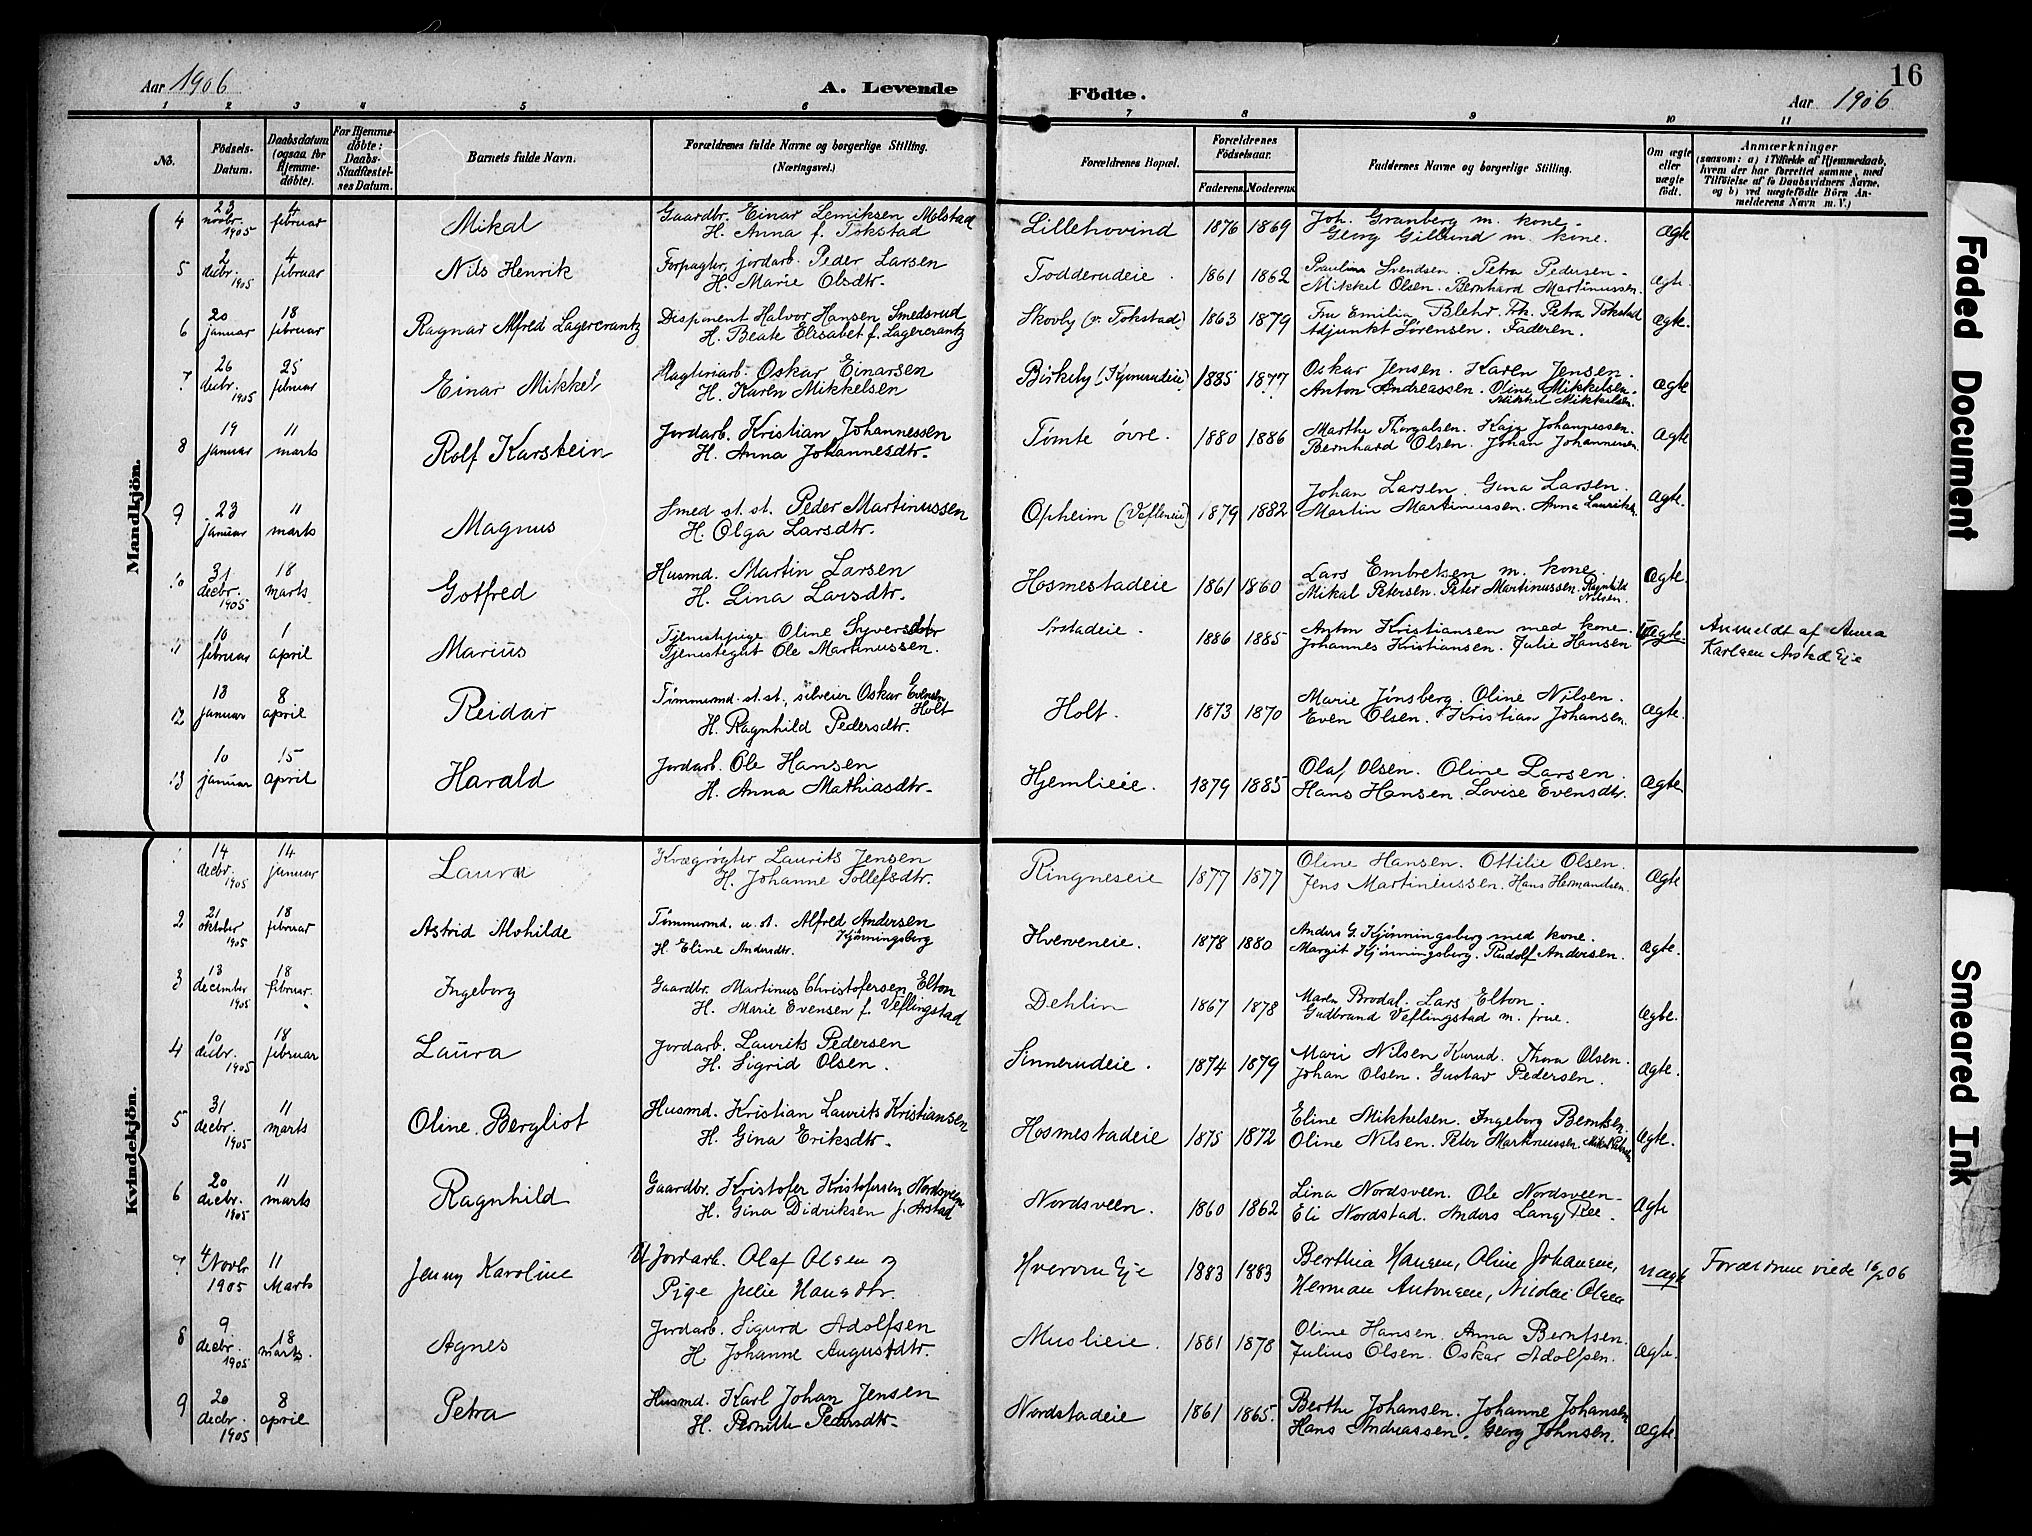 Aar 1906
A. Levende
Födte.
16
Aar 1906
1 2 3 4 5 6 7 8 9 10 11
No.
Födsels-Datum.
Daabsdatum (ogsaa for Hjemmedöbte).
For Hjemmedöbte: Daabs-Stadfæstelses Datum.
Barnets fulde Navn.
Forældrenes fulde Navne og borgerlige Stilling. (Næringsvei.)
Forældrenes Bopæl.
Forældrenes Födselsaar.
Faderens. Moderens.
Faddernes Navne og borgerlige Stilling.
Om ægte eller uægte födt.
Anmærkninger
(saasom: a) i Tilfælde af Hjemmedaab, hvem der har forrettet samme, med Tilföielse af to Daabsvidners Navne, og b) ved uægtefödte Börn Anmelderens Navn m. V.)
Mandkjön.
4 23 novbr. 1905 4 februar Mikal Gaardbr. Einar Lemiksen Melstad
H. Anna f. Tokstad Lillehovind 1876 1869 Joh. Granberg m. kone.
Georg Gillund m. kone. Ægte
5 2 decbr. 1905 4 februar Nils Henrik Forpagter, jordarb. Peder Larsen
H. Marie Olsdtr. Todderudeie. 1861 1862 Paulina Svendsen. Petra Pedersen.
Mikkel Olsen. Bernhard Martinussen. Ægte
6 20 januar 18 februar Ragnar Alfred Lagercrantz Disponent Halvor Hansen Smedsrud
H. Beate Elisabet f. Lagercrantz Skovly (v. Tokstad) 1863 1879 Fru Emilia Blehr. Frk. Petra Tokstad
Adjunkt Sörensen. Faderen. Ægte.
7 26 decbr. 1905 25 februar Einar Mikkel Oskar Einarsen
H. Karen Mikkelsen Birkely (Kjonerudeie) 1885 1877 Oskar Jensen. Karen Jensen.
Anton Andreassen. Oline Mikkelsen.
Mikkel Mikkelsen. Ægte
8 19 januar 11 marts Rolf Karstein Jordarb. Kristian Johannessen
H. Anna Johannesdtr. Tömte övre. 1880 1886 Marthe Thorvalsen. Kaja Johannessen.
Bernhard Olsen. Johan Johannessen Ægte
9 23 januar 11 marts Magnus Smed st. st. Peder Martinussen
H. Olga Larsdtr. Opheim 1879 1882 Johan Larsen. Gina Larsen.
Martin Martinussen. Anna Ægte.
10 31 decbr. 1905 18 marts Gotfred Husmd. Martin Larsen
H. Lina Larsdtr. Hosmestadeie 1861 1860 Lars Embretsen m. kone.
Mikal Petersen. Peter Martinussen. Ragnhild Nilsen. Ægte.
11 10 februar 1 april Marius Tjenestepige Oline Syversdtr
Tjenestegut Ole Martinussen. Arstadeie. 1886 1885 Anton Kristiansen med kone.
Johannes Kristiansen. Julie Hansen Uægte Anmeldt af Anna
Karlsen Arstad Eje
12 13 januar 8 april Reidar Tömmermd. st. st., selveier Oskar Evensen Holt
H. Ragnhild Pedersdtr. Holt. 1873 1870 Marie Jönsberg. Oline Nilsen.
Even Olsen. Kristian Johansen. Ægte.
13 10 januar 15 april Harald Jordarb. Ole Hansen
H. Anna Mathiasdtr. Hjemlieie. 1879 1885 Olaf Olsen. Oline Larsen.
Hans Hansen. Lovise Evensdtr. Ægte
Kvindekjön.
1 14 decbr. 1905 14 januar Laura Kvægrögter Laurits Jensen
H. Johanne Tollefsdtr. Ringneseie 1877 1877 Oline Hansen. Ottilie Olsen.
Jens Martiniussen. Hans Hermandsen. Ægte
2 21 oktober 1905 18 februar Astrid Alvhilde Tömmermd. u. st. Alfred Andersen Kjönningsberg
H. Eline Andersdtr. Hverveneie. 1878 1880 Anders G. Kjönningsberg med kone.
Margit Kjönningsberg. Rudolf Andersen. Ægte.
3 13 december 1905 18 februar. Ingeborg Gaardbr. Martinus Christofersen Elton
H. Marie Evensen f. Veflingstad Dehlin 1867 1878 Maren Brodal. Lars Elton.
Gudbrand Veflingstad m. frue. Ægte.
4 10 decbr. 1905 18 februar Laura Jordarb. Laurits Pedersen
H. Sigrid Olsen. Sinnerudeie. 1874 1879 Mari Nilsen Kurud. Thora Olsen.
Johan Olsen. Gustav Pedersen. Ægte.
5 31 decbr. 1905 11 marts Oline Bergliot Husmd. Kristian Laurits Kristiansen
H. Gina Eriksdtr. Hosmestadeie 1875 1872 Eline Mikkelsen. Ingeborg Berntsen.
Oline Nilsen. Peter Martinussen. Ægte.
6 20 decbr. 1905 11 marts Ragnhild Gaardbr. Kristofer Kristofersen Nordsveen
H. Gina Didriksen f. Arstad Nordsveen. 1860 1862 Lina Nordsveen. Ole Nordsveen.
Eli Nordstad. Anders Lang Ree. Ægte
7 4 Novbr 1905 11 Marts Jenny Karoline U Jordarb. Olaf Olsen og
Pige Julie Hansdtr. Hverven Eje 1883 1883 Berthia Hansen, Oline Johansen,
Herman Antonsen, Nicolai Olsen Uægte Forældrene viede 16/2 06
8 9 decbr. 1905 18 marts. Agnes Jordarb. Sigurd Adolfsen
H. Johanne Augustdtr. Muslieie. 1881 1878 Oline Hansen. Anna Berntsen.
Julius Olsen. Oskar Adolfsen. Ægte.
9 20 decbr. 1905 8 april Petra Husmd. Karl Johan Jensen
H. Pernille Pedersdtr. Nordstadeie 1861 1865. Berthe Johansen. Johanne Johansen
Hans Andreassen. Georg Johnsen. Ægte.
Faded Document
Smeared Ink